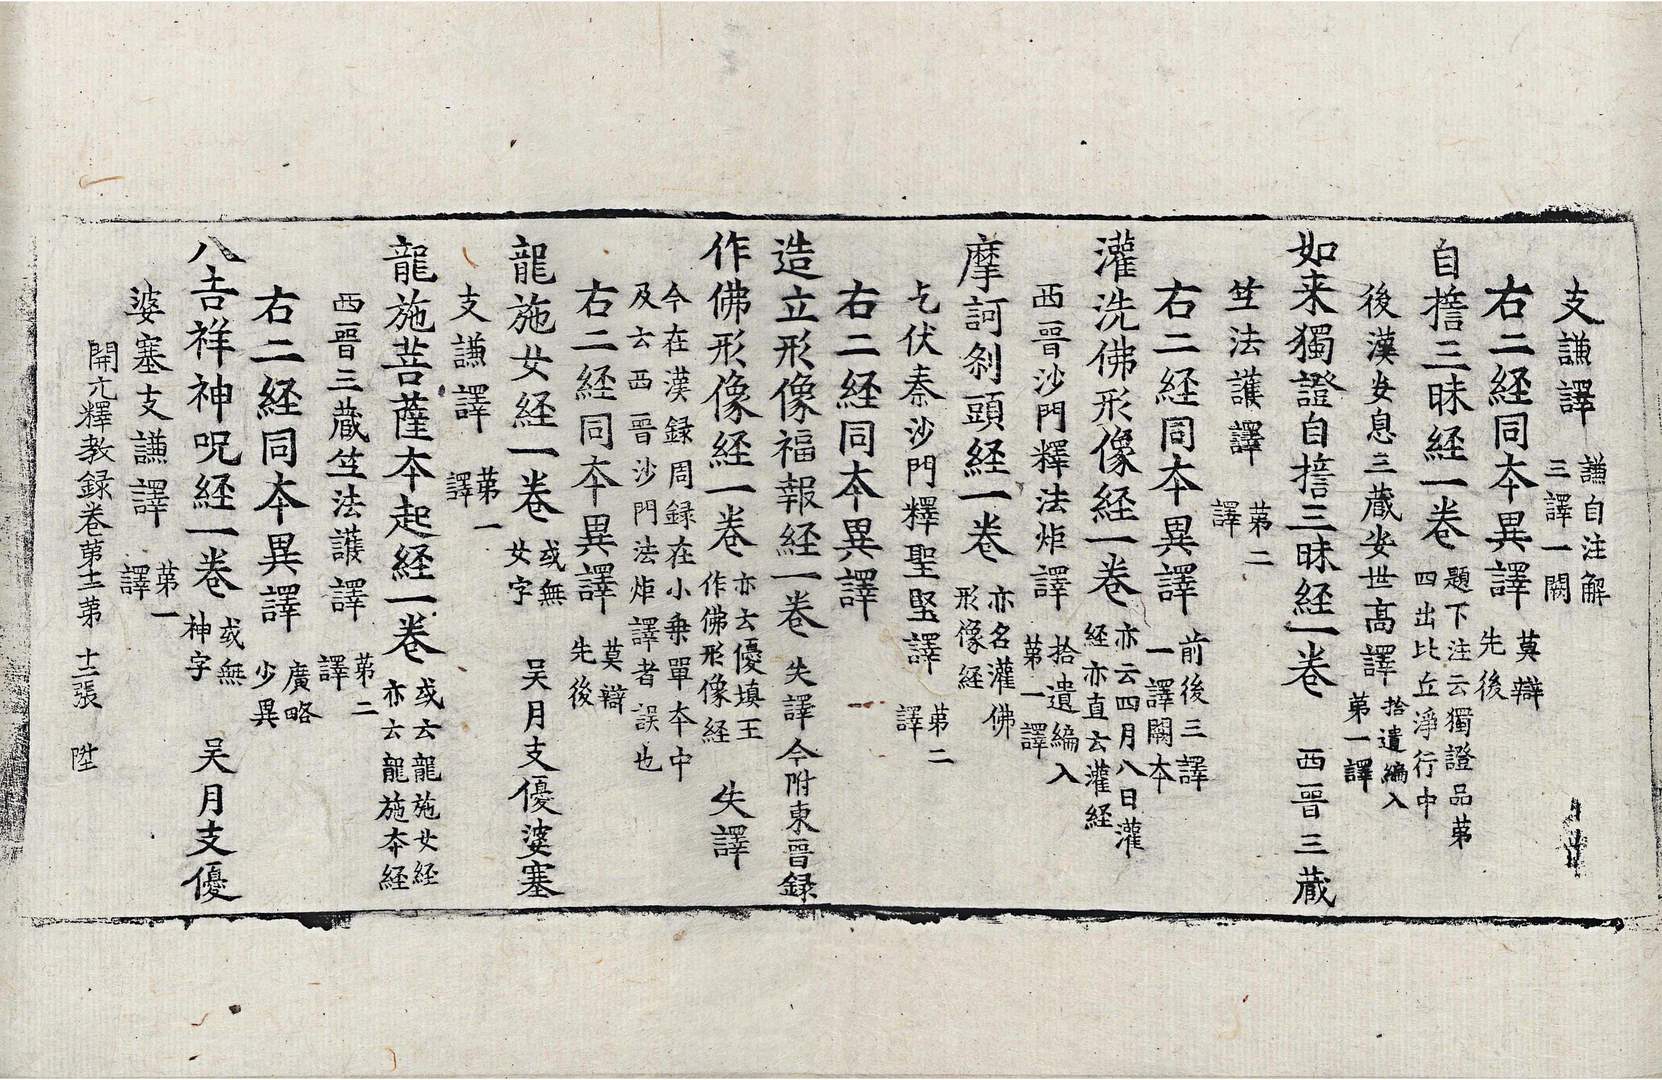 支謙譯 謙自注解三譯一闕
右二経同夲異譯 莫辯先後
自誓三昧経一卷 題下注云獨證品苐四出比丘淨行中
後漢安息三藏安世髙譯 拾遺編入苐一譯
如来獨證自誓三昧経一卷 西晉三藏
竺法護譯 苐二譯
右二経同夲異譯 前後三譯一譯闕夲
灌洗佛形像経一卷 亦云四月八日灌経亦直云灌経
西晉沙門釋法炬譯 拾遺編入苐一譯
摩訶剎頭経一卷 亦名灌佛形像経
乞伏秦沙門釋聖堅譯 苐二譯
右二経同夲異譯
造立形像福報経一卷 失譯今附東晉録
作佛形像経一卷 亦云優填王作佛形像経 失譯
今在漢録周録在小乗單夲中及云西晉沙門法炬譯者誤也
右二経同夲異譯 莫辯先後
龍施女経一卷 或無女字 吴月支優婆塞
支謙譯 苐一譯
龍施菩薩夲起経一卷 或云龍施女経亦云龍施夲経
西晉三藏竺法護譯 苐二譯
右二経同夲異譯 廣略少異
八吉祥神呪経一卷 或無神字 吴月支優
婆塞支謙譯 苐一譯
開元釋教録卷苐十二苐 十二張 陞